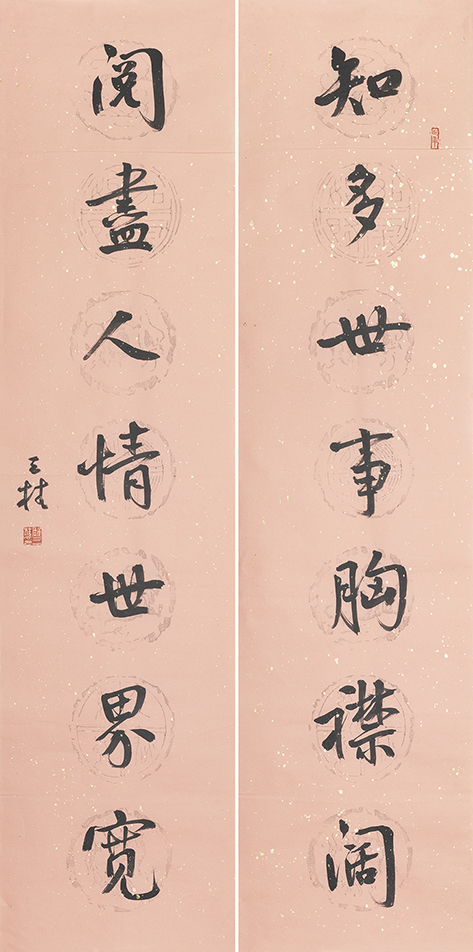 知多世事胸襟阔
阅盡人情世界宽